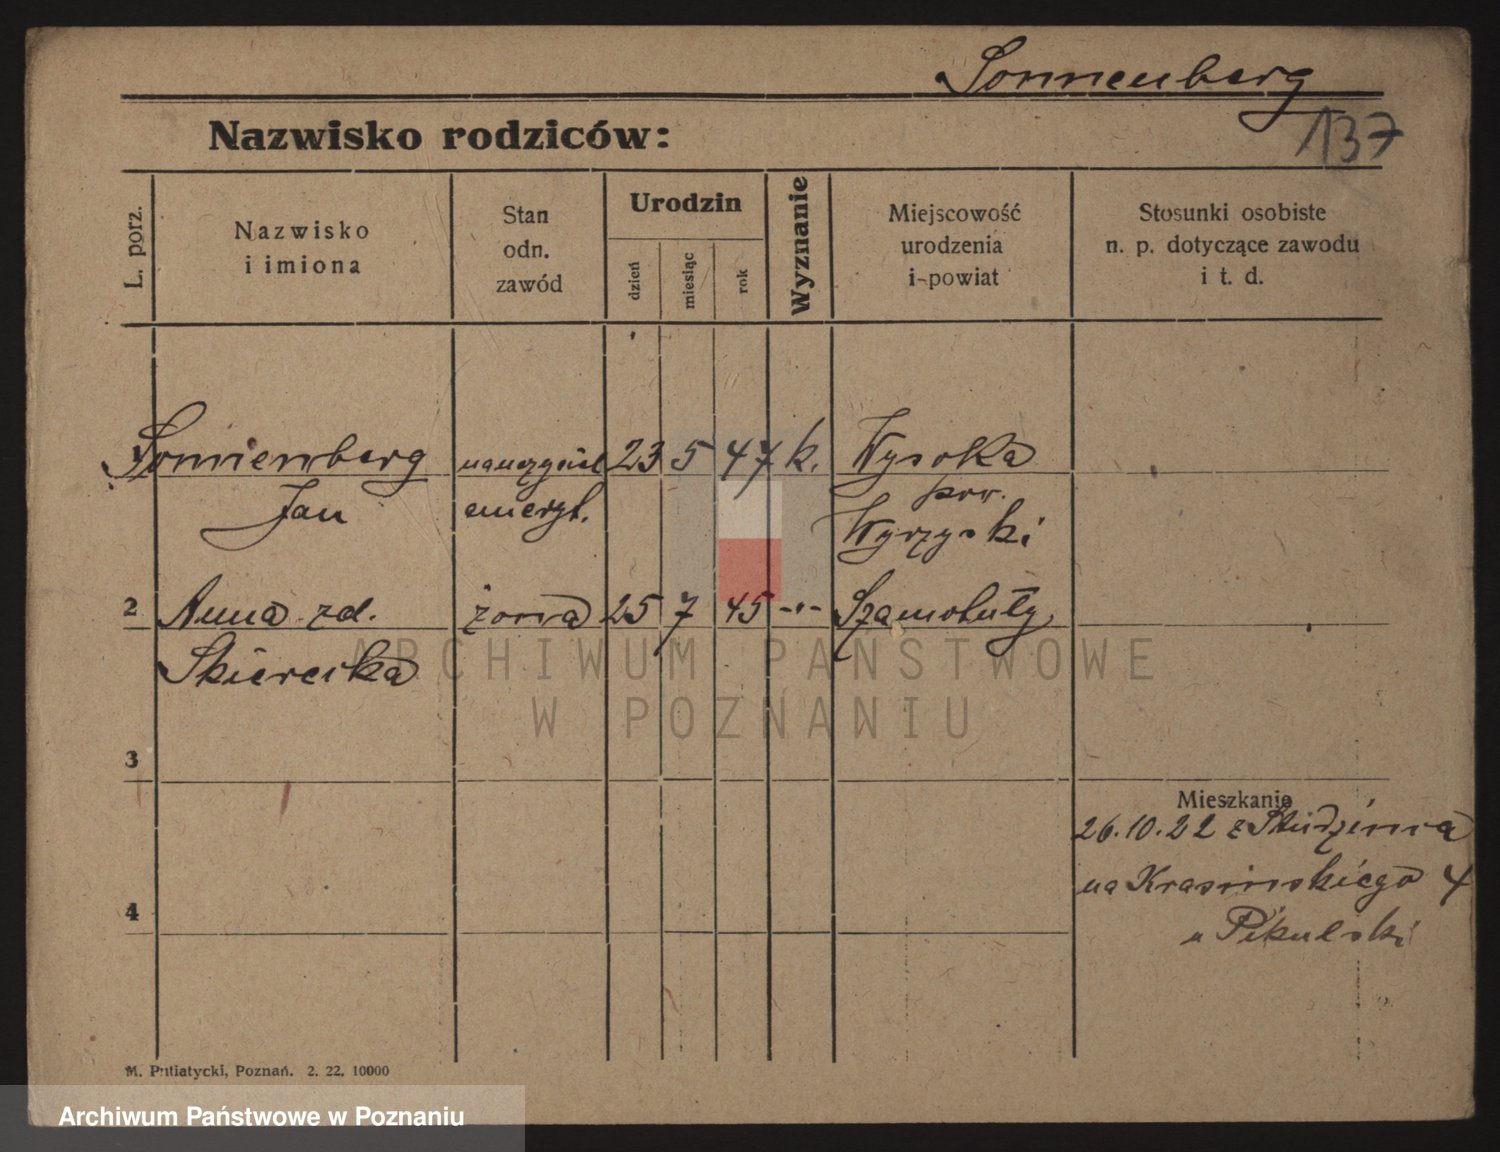 Sonnenberg
137
Nazwisko rodziców:
L. porz.
Nazwisko
i imiona
Stan
odn.
zawód
Urodzin
dzień
miesiąc
rok
Wyznanie
Miejscowość
urodzenia
i powiat
Stosunki osobiste
n. p. dotyczące zawodu
i t. d.
Sonnenberg nauczyciel 23 5 47 k. Wysoka
Jan emeryt. pow.
Wyrzyski
2 Anna zd. żona 25 7 45 -"- Szamotuły
3
4
Mieszkanie
26.10.22 z
na Krasińskiego 4
u Pikulski
M. Putiatycki, Poznań. 2. 22. 10000
ARCHIWUM PAŃSTWOWE
W POZNANIU
Archiwum Państwowe w Poznaniu